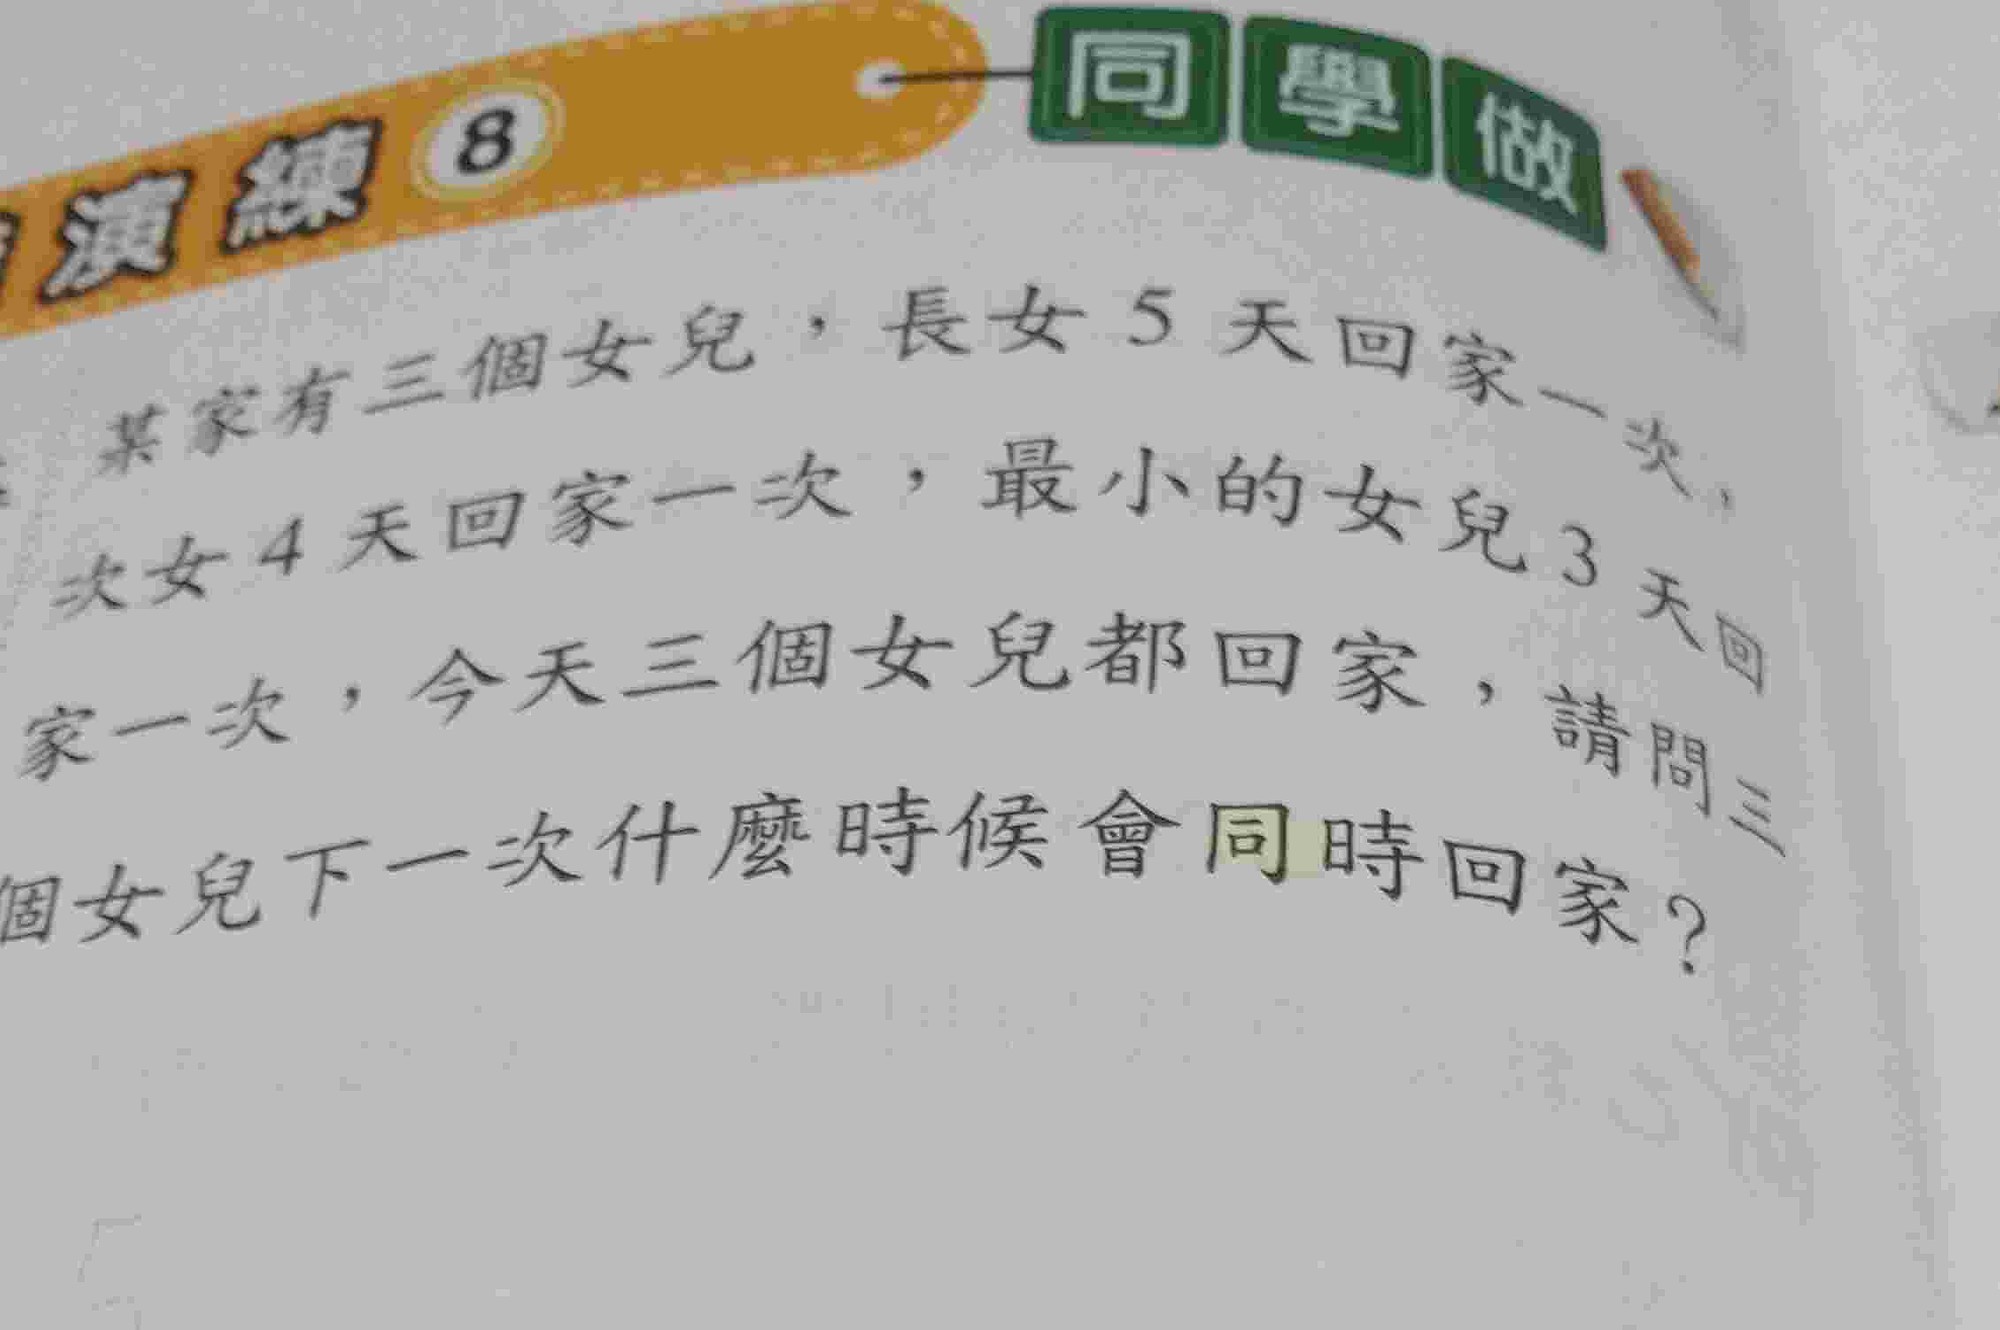 演練 8 同學做
某家有三個女兒，長女 5 天回家一次，
次女 4 天回家一次，最小的女兒 3 天回
家一次，今天三個女兒都回家，請問三
個女兒下一次什麼時候會同時回家？